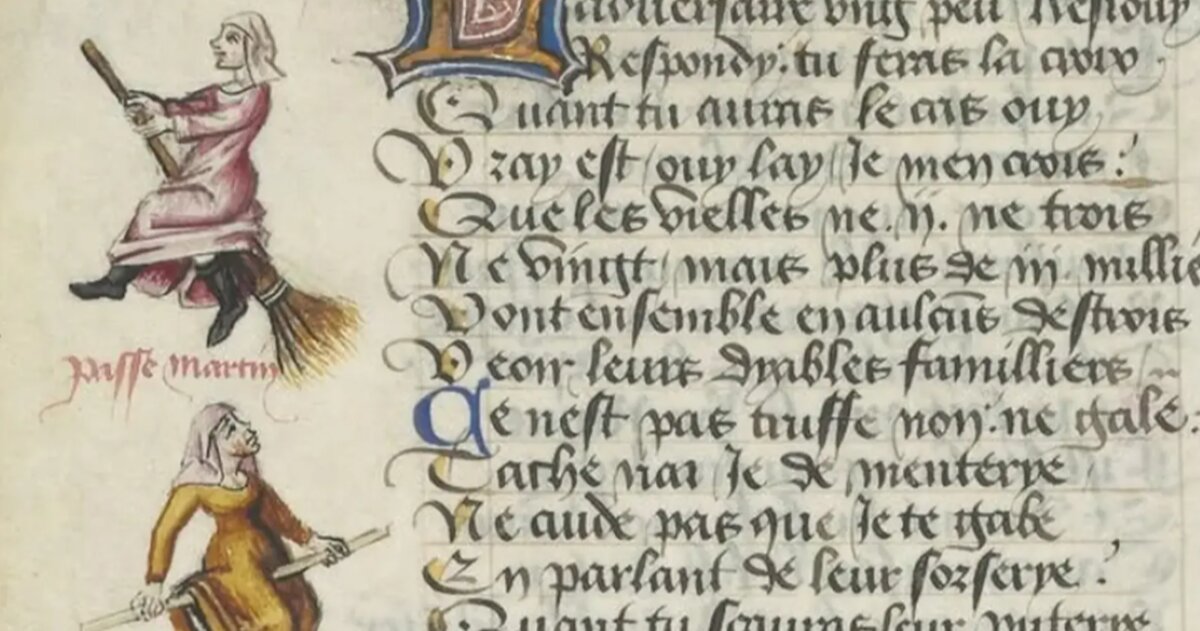 Ladversaire ung peu resiouy
Respondy: tu feras la croix
Quant tu auras le cas ouy
Vray est ouy lay Je men crois:
Que les vielles ne .ij. ne trois
Ne vingt mais plus de iij. millie
Vont ensemble en aulcūs destrois
Veoir leurs dyables familliers
passe martin
Ce nest pas truffe non: ne gale:
Tache nai Je de menterye
Ne cuide pas que Je te gabe
En parlant de leur sorserye:
Quant tu scauras leur puterye